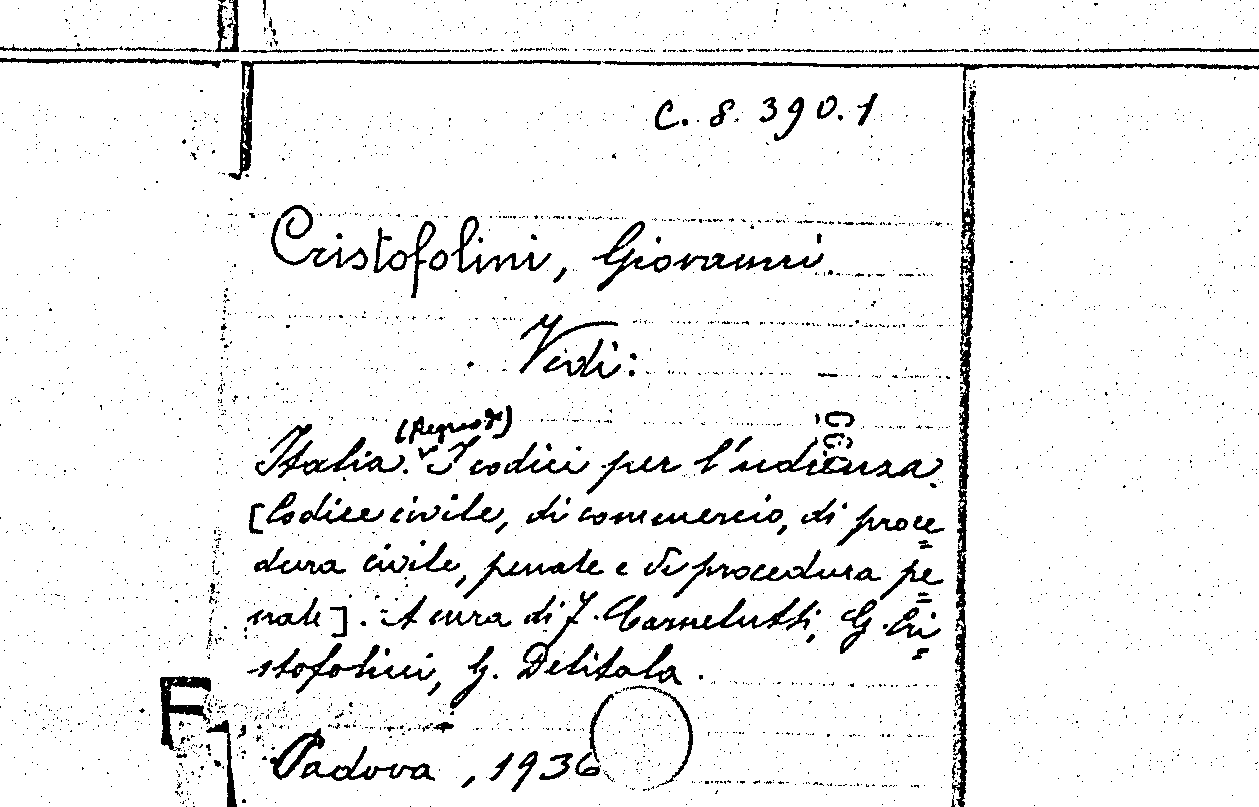 C. 8. 390.1
Cristofolini, Giovanni
Vedi:
(Regno d')
Italia. I codici per l'udienza.
[Codice civile, di commercio, di proce=
dura civile, penale e di procedura pe=
nale]. A cura di F. Carnelutti, G. Cri=
stofolini, G. Delitala.
Padova, 1936